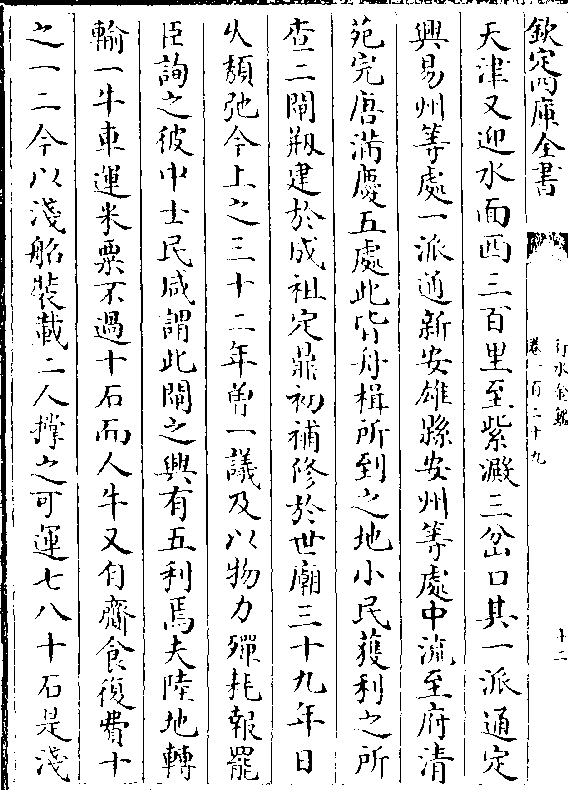 欽定四庫全書
行水金鑑
卷一百二十九
十二
天津又迎水面西三百里至紫澱三岔口其一派通定
興易州等處一派通新安雄縣安州等處中流至府清
苑完唐滿慶五處此皆舟楫所到之地小民獲利之所
查二閘剏建於成祖定鼎初補修於世廟三十九年日
久頽弛今上之三十二年曽一議及以物力殫耗報罷
臣詢之彼中士民咸謂此閘之興有五利焉夫陸地轉
輸一牛車運米粟不過十石而人牛又自齎食復費十
之一二今以淺船裝載二人撑之可運七八十石是淺